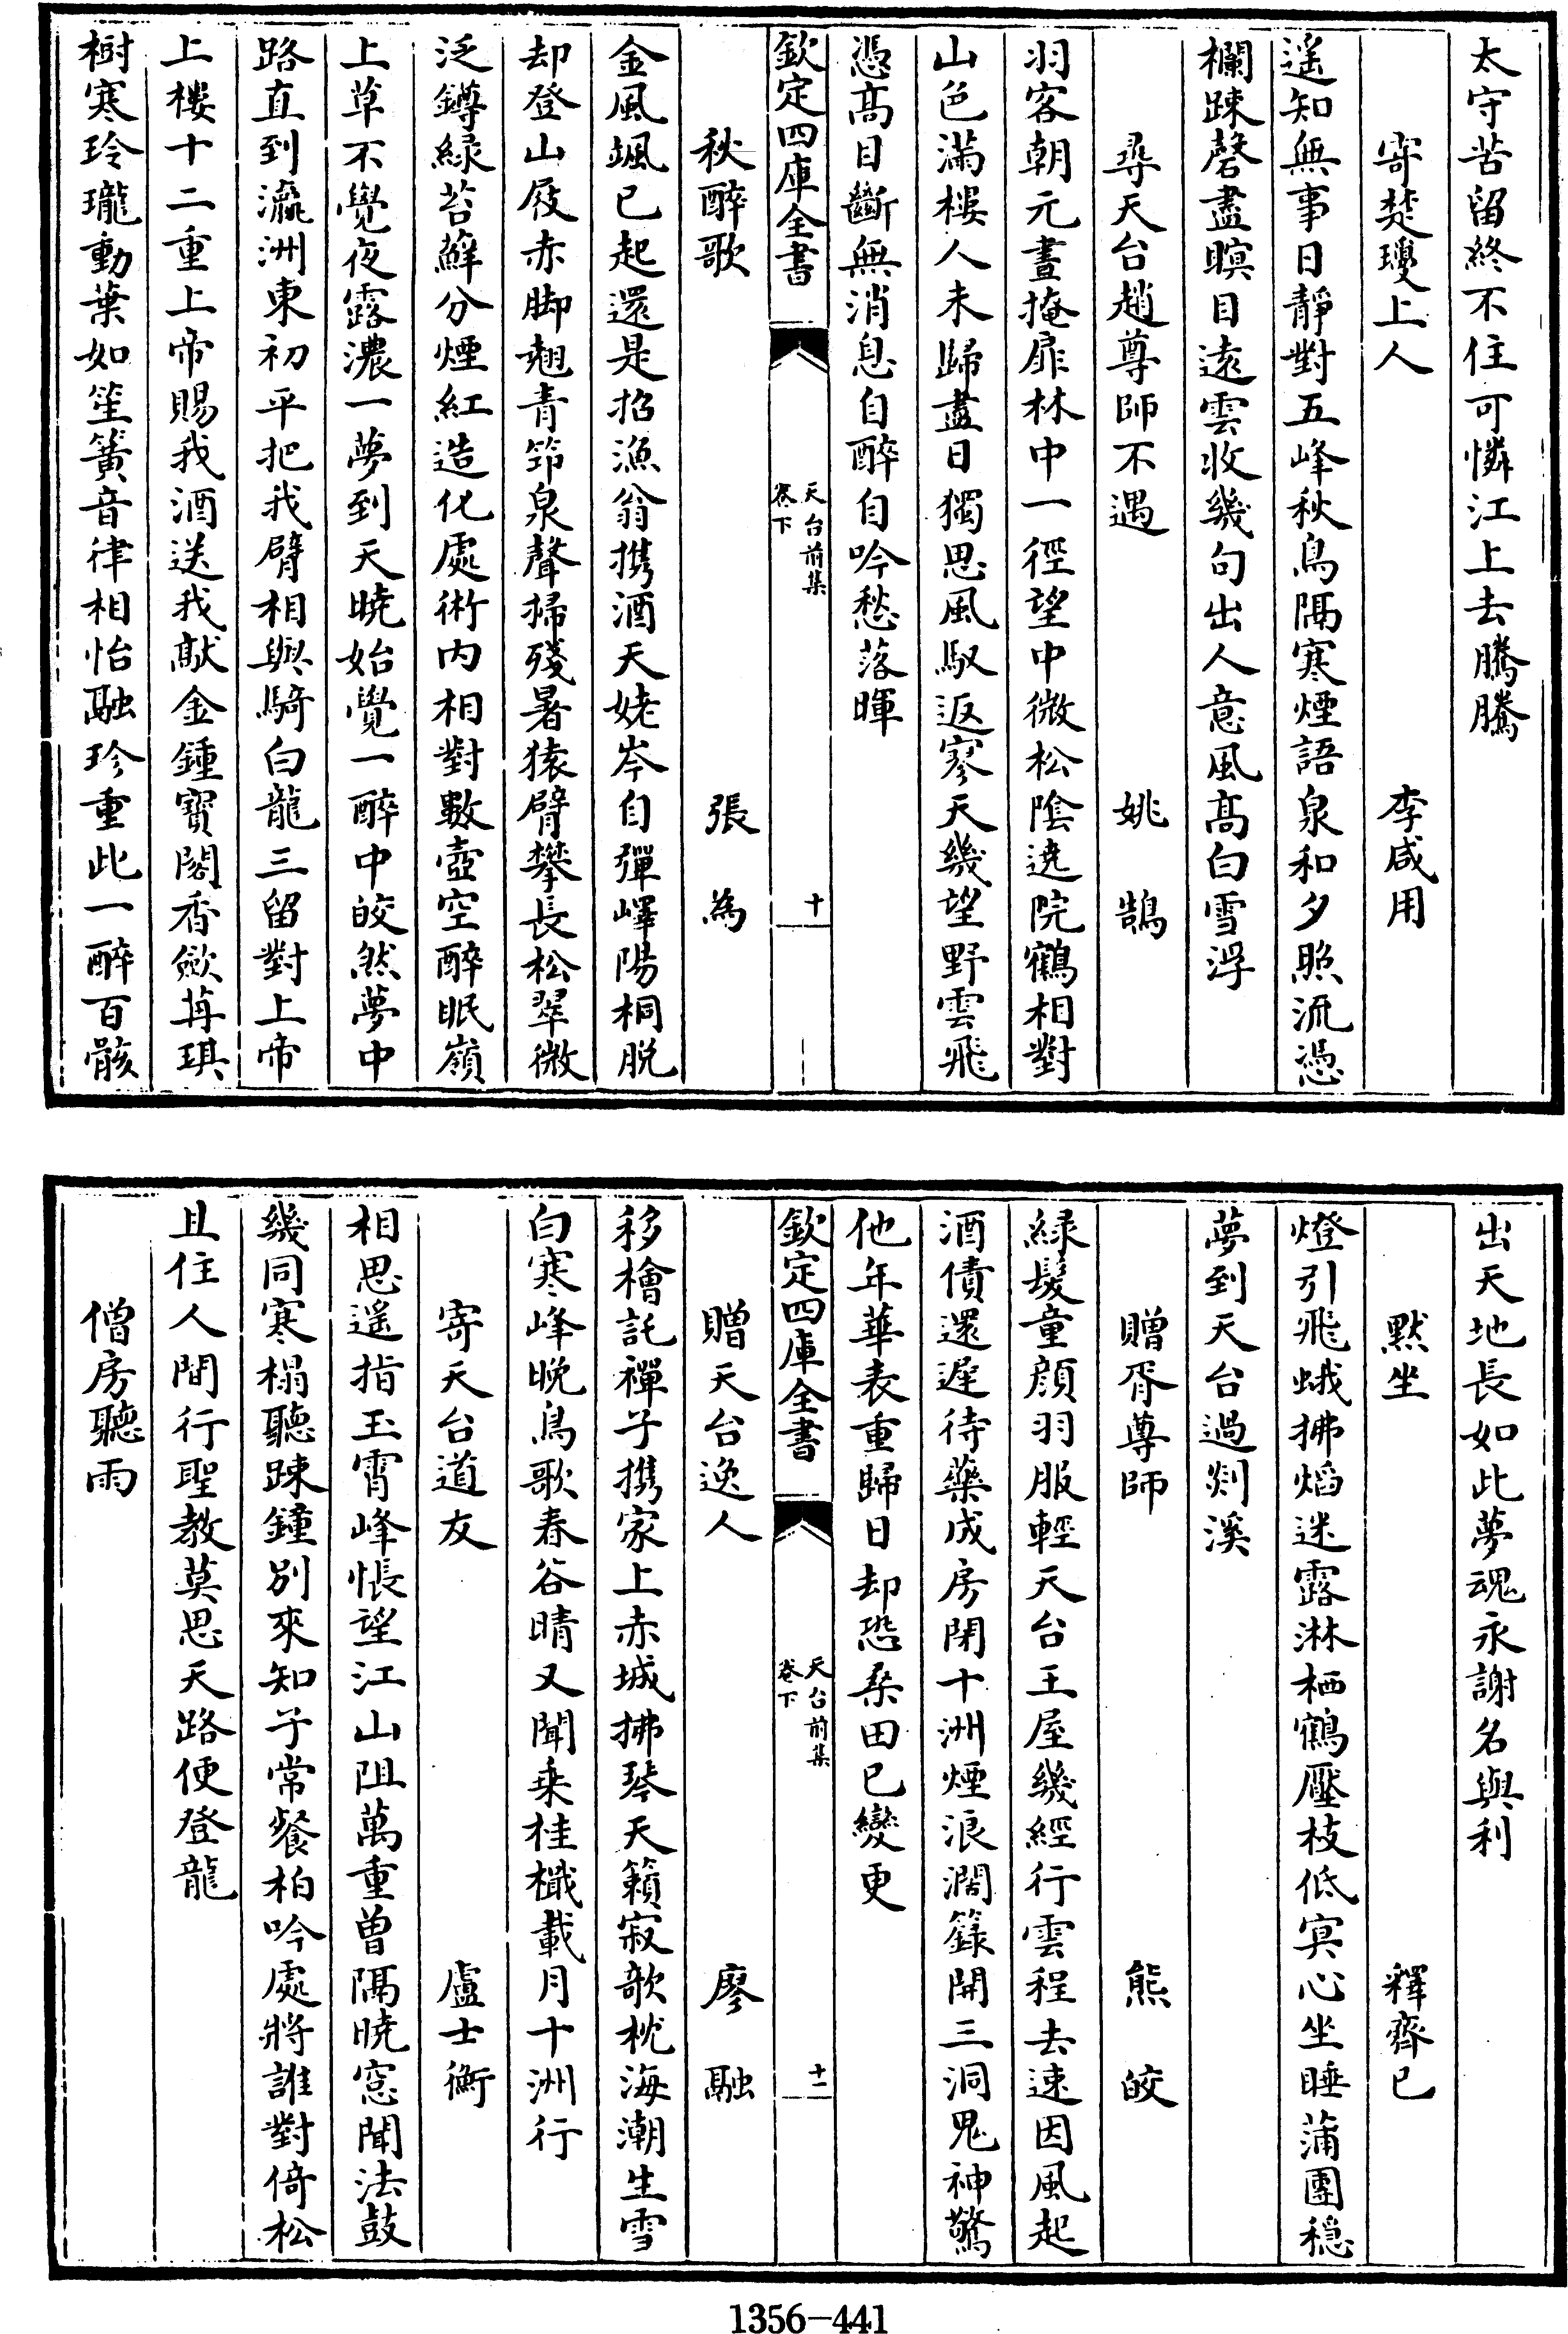 太守苦留終不住可憐江上去騰騰
寄楚瓊上人　李咸用
遥知無事日靜對五峰秋鳥隔寒煙語泉和夕照流憑
欄踈磬盡瞑目遠雲收幾句出人意風髙白雪浮
尋天台趙尊師不遇　姚鵠
羽客朝元晝掩扉林中一徑望中微松陰遶院鶴相對
山色滿樓人未歸盡日獨思風馭返寥天幾望野雲飛
憑髙目斷無消息自醉自吟愁落暉
欽定四庫全書　天台前集卷下　十
秋醉歌　張為
金風颯已起還是招漁翁携酒天姥岑自彈嶧陽桐脱
却登山屐赤脚翹青笻泉聲掃殘暑猿臂攀長松翠微
泛鐏緑苔蘚分煙紅造化處術内相對數壺空醉眠嶺
上草不覺夜露濃一夢到天曉始覺一醉中皎然夢中
路直到瀛洲東初平把我臂相與騎白龍三留對上帝
上樓十二重上帝賜我酒送我獻金鍾寳閣香歛苒琪
樹寒玲瓏動葉如笙簧音律相怡融珍重此一醉百骸
出天地長如此夢魂永謝名與利
黙坐　釋齊已
燈引飛蛾拂熖迷露淋栖鶴壓枝低㝠心坐睡蒲團穏
夢到天台過剡溪
贈胥尊師　熊皎
緑髮童顔羽服輕天台王屋幾經行雲程去速因風起
酒債還遲待藥成房閉十洲煙浪濶籙開三洞鬼神驚
他年華表重歸日却恐桑田已變更
欽定四庫全書　天台前集卷下　十一
贈天台逸人　廖融
移檜託禪子携家上赤城拂琴天籟寂欹枕海潮生雪
白寒峰晚鳥歌春谷晴又聞乗桂檝載月十洲行
寄天台道友　盧士衡
相思遥指玉霄峰悵望江山阻萬重曽隔曉窓聞法鼓
幾同寒榻聽踈鐘别來知子常餐柏吟處將誰對倚松
且住人間行聖教莫思天路便登龍
僧房聽雨
1356-441